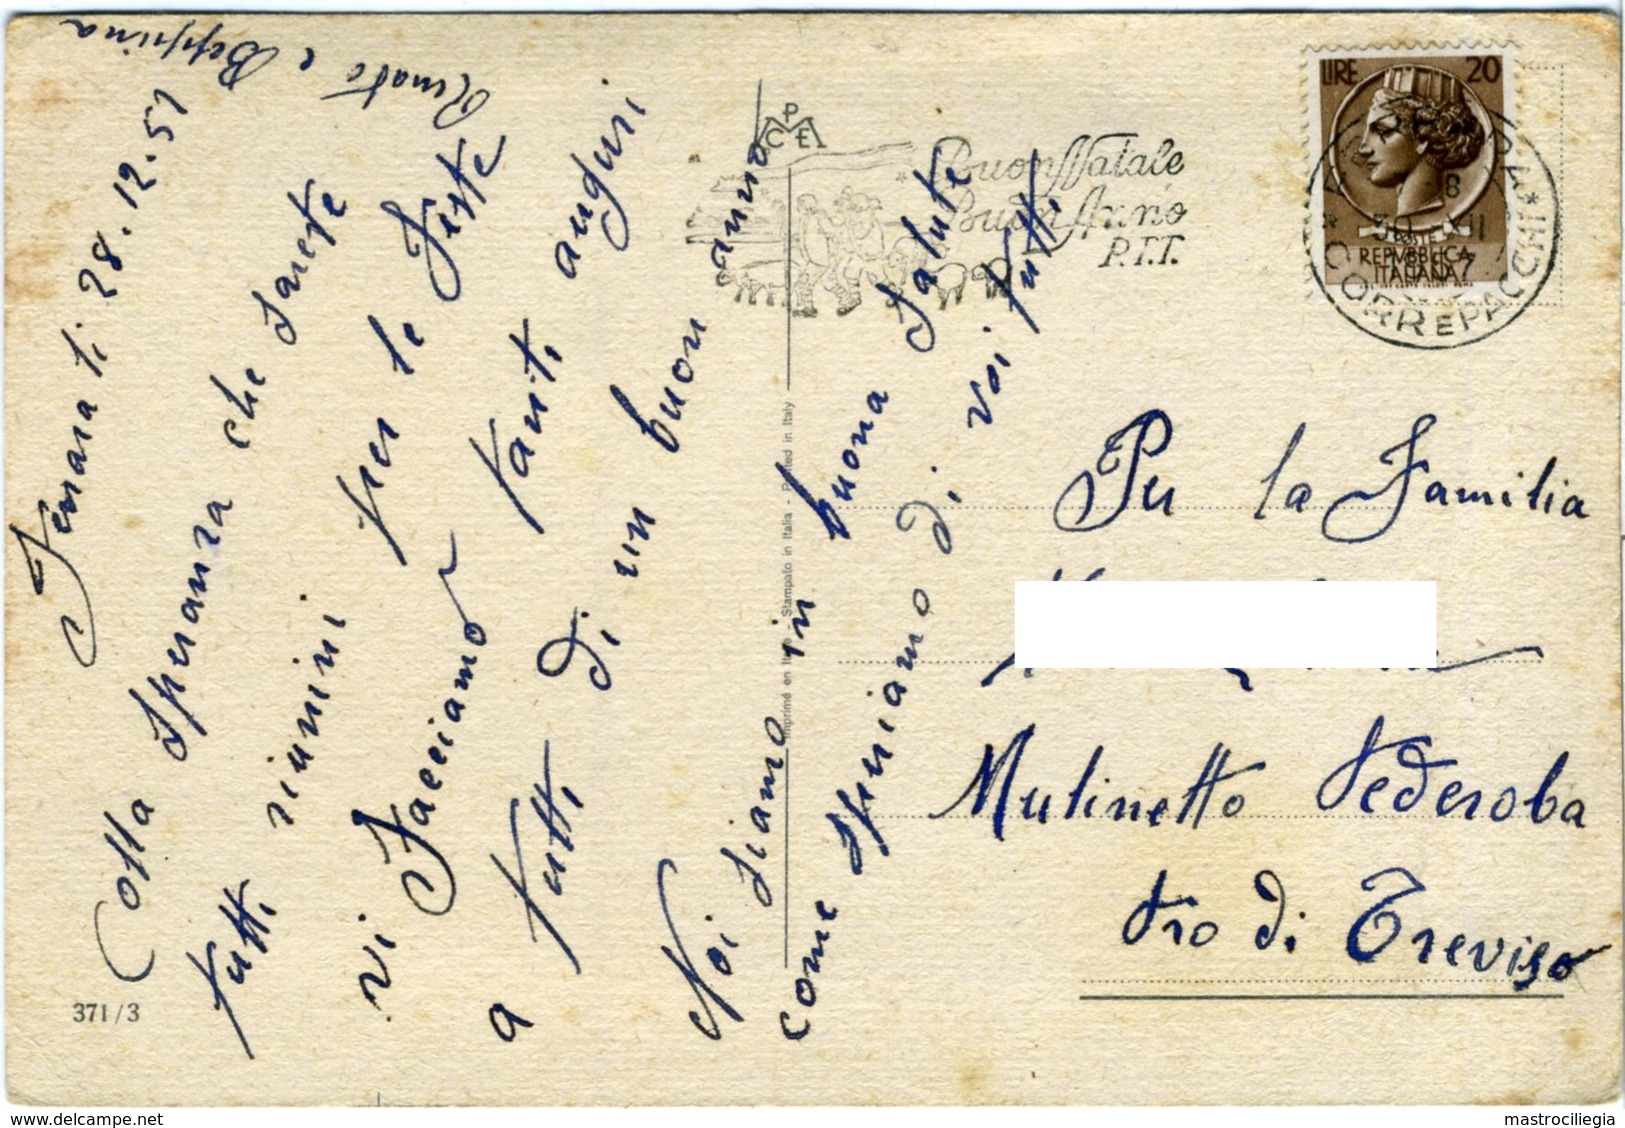 Ferrara li 28.12.57
Colla speranza che sarete
tutti riunini per le Feste
vi Facciamo tanti auguri
a tutti di un buon anno
Noi siamo in buona Salute
come speriamo di voi tutti
Renato e Beppina
C P E
Buon Natale
Buon Anno
P.T.T.
LIRE 20
POSTE
REPVBBLICA
ITALIANA
CORR E PACCHI
30 XII
Imprimé en Italie - Stampato in Italia - Printed in Italy
Per la Familia
Mulinetto Pederoba
Pro di Treviso
371/3
www.delcampe.net
mastrociliegia